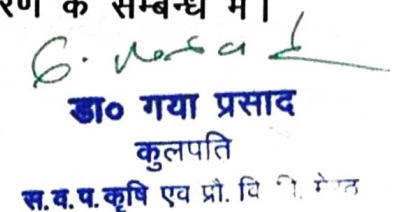 के सम्बन्ध में।
डा० गया प्रसाद
कुलपति
स.व.प.कृषि एव प्रौ. वि